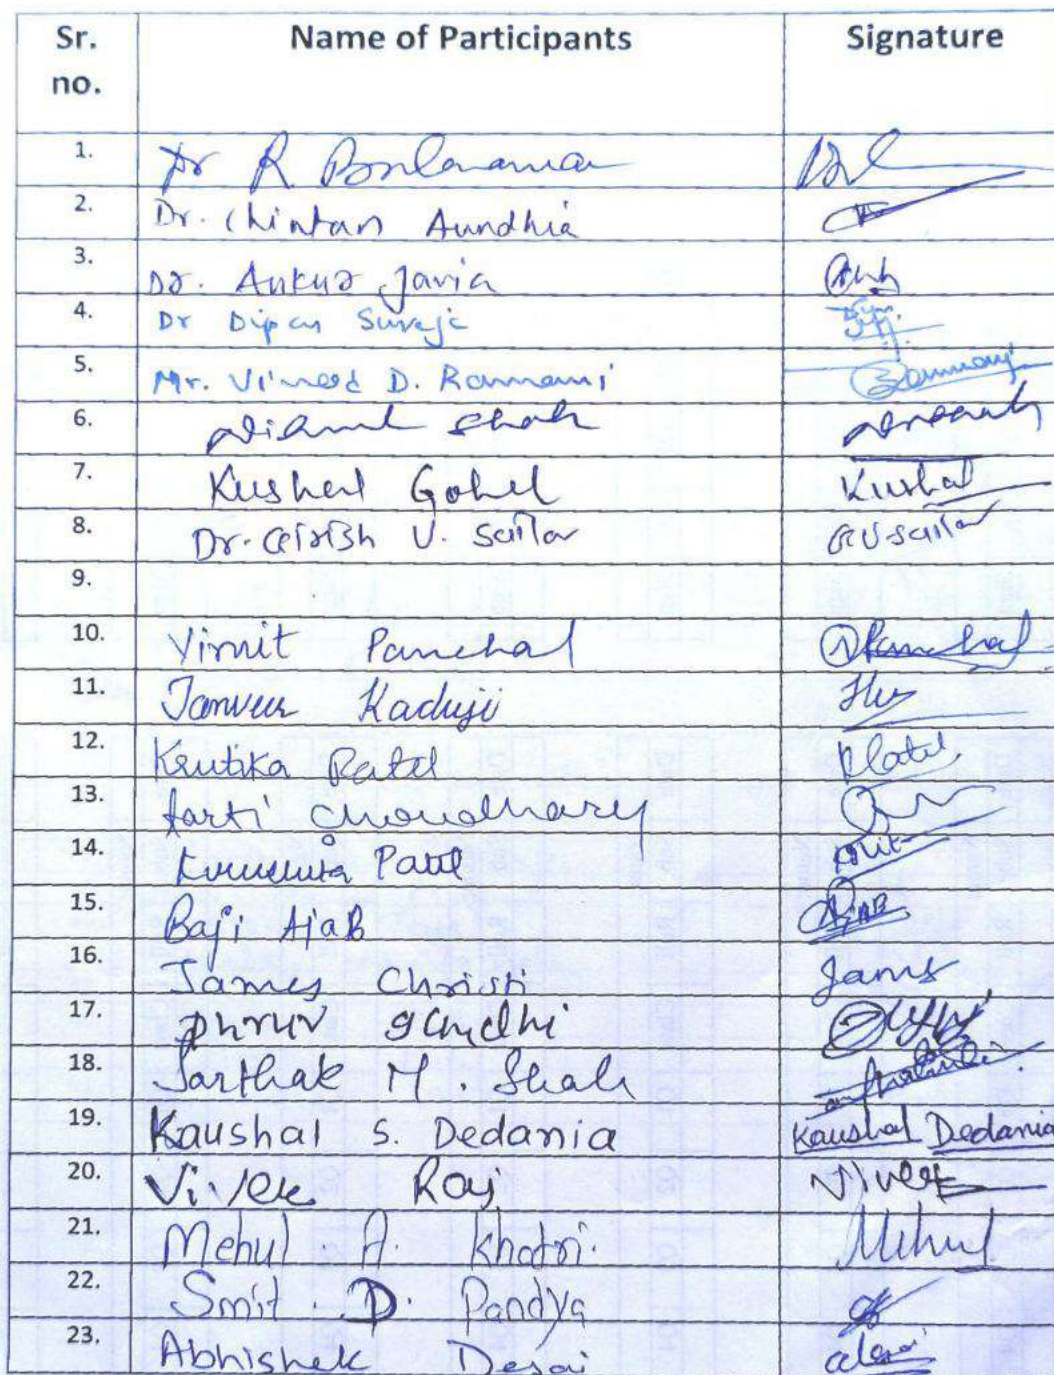 Sr. no. Name of Participants Signature
1. Dr R
2. Dr. Chintan Aundhia
3. Dr. Ankur Javia
4. Dr Dipen Sureja
5. Mr. Vinod D. Ramani Ramani
6. Shah
7. Kushal Gohel Kushal
8. Dr. Girish U. Sailor GUSailor
9.
10. Virnit Panchal Panchal
11. Tanveer Kaduji
12. Krutika Patel KPatel
13. Aarti Choudhary
14. Patel
15. Baji Ajab Ajab
16. James Christi James
17. Dhruv Gandhi
18. Sarthak M. Shah
19. Kaushal S. Dedania Kaushal Dedania
20. Vivek Raj Vivek
21. Mehul A. Khatri. Mehul
22. Smit . D. Pandya
23. Abhishek Desai